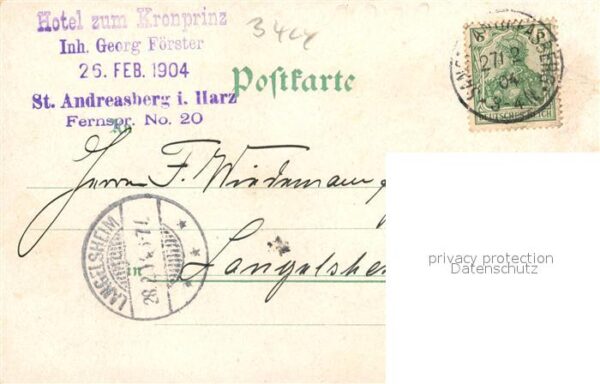 Hotel zum Kronprinz
Inh. Georg Förster
26. FEB. 1904
St. Andreasberg i. Harz
Fernspr. No. 20
Postkarte
ANDREASBERG
27 2
04
3-4 N
DEUTSCHES REICH
Herrn F. Wiedemann
in Langelshe
LANGELSHEIM
privacy protection
Datenschutz